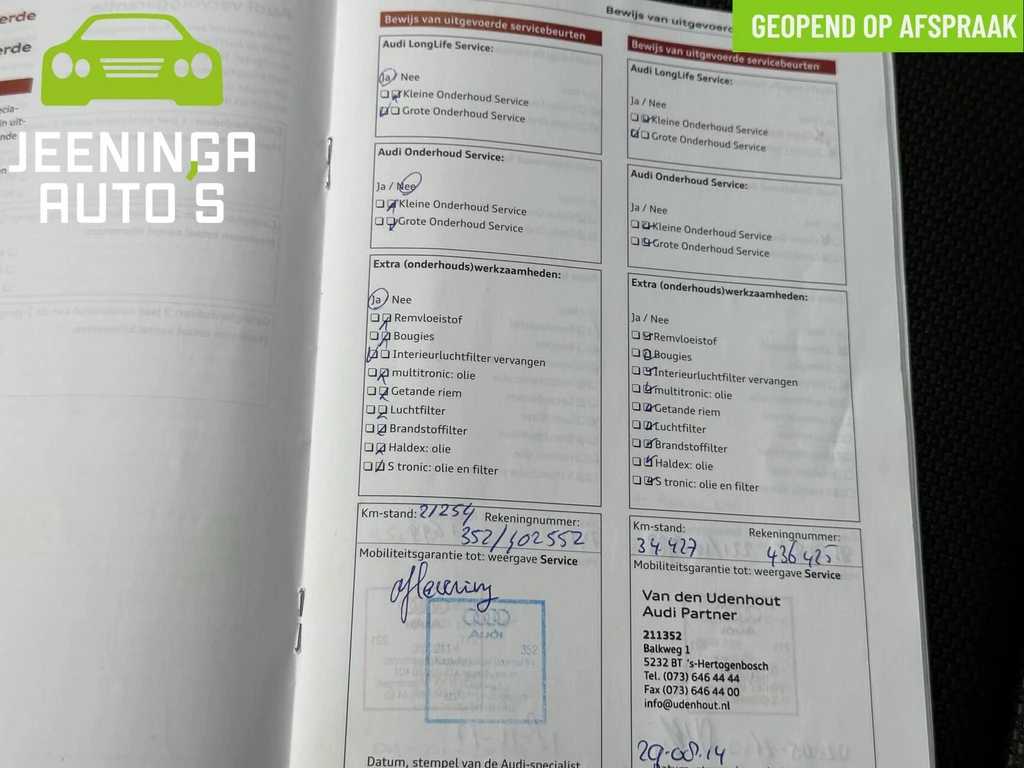 GEOPEND OP AFSPRAAK
JEENINGA
AUTO'S
erde
erde
Bewijs van uitgevoerde servicebeurten
Audi LongLife Service:
Ja / Nee
Kleine Onderhoud Service
Grote Onderhoud Service
Audi Onderhoud Service:
Ja / Nee
Kleine Onderhoud Service
Grote Onderhoud Service
Extra (onderhouds)werkzaamheden:
Ja / Nee
Remvloeistof
Bougies
Interieurluchtfilter vervangen
multitronic: olie
Getande riem
Luchtfilter
Brandstoffilter
Haldex: olie
S tronic: olie en filter
Km-stand: 21254
Rekeningnummer:
352/402552
Mobiliteitsgarantie tot: weergave Service
aflevering
Audi
352
Datum, stempel van de Audi-specialist
Bewijs van uitgevoerde
Bewijs van uitgevoerde servicebeurten
Audi LongLife Service:
Ja / Nee
Kleine Onderhoud Service
Grote Onderhoud Service
Audi Onderhoud Service:
Ja / Nee
Kleine Onderhoud Service
Grote Onderhoud Service
Extra (onderhouds)werkzaamheden:
Ja / Nee
Remvloeistof
Bougies
Interieurluchtfilter vervangen
multitronic: olie
Getande riem
Luchtfilter
Brandstoffilter
Haldex: olie
S tronic: olie en filter
Km-stand:
Rekeningnummer:
34.427
436425
Mobiliteitsgarantie tot: weergave Service
Van den Udenhout
Audi Partner
211352
Balkweg 1
5232 BT 's-Hertogenbosch
Tel. (073) 646 44 44
Fax (073) 646 44 00
info@udenhout.nl
29-08-14